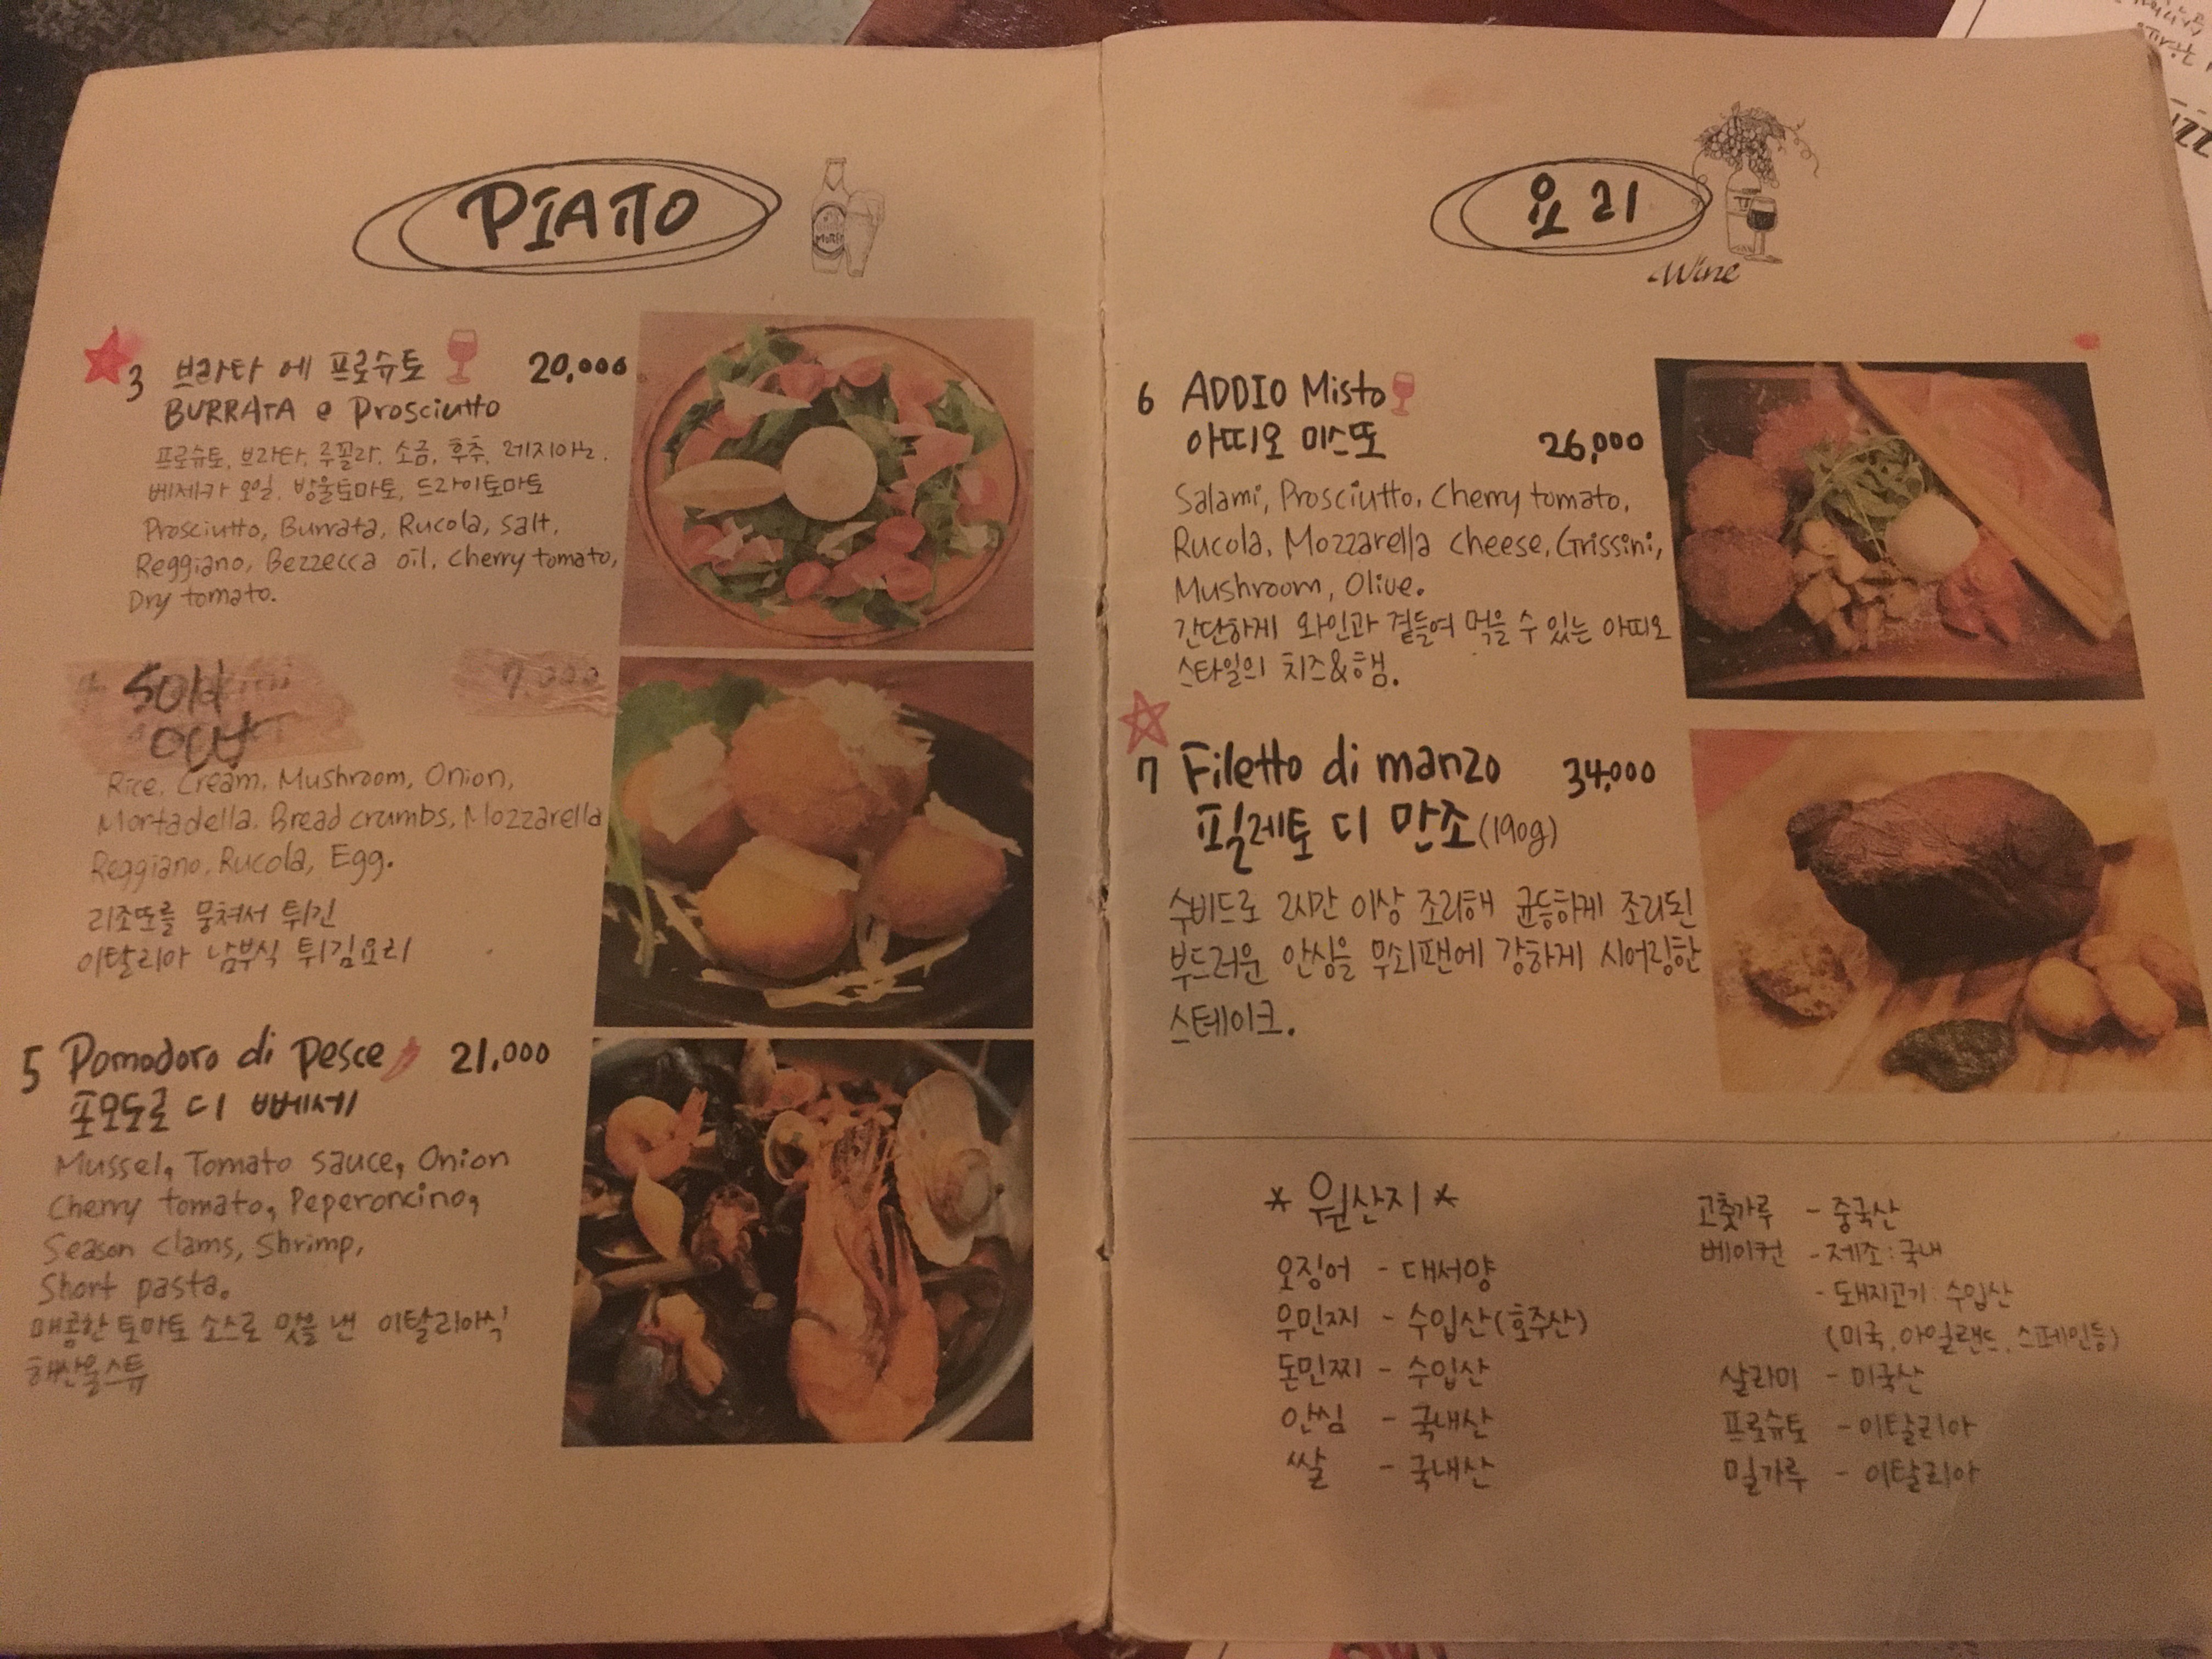 PIATTO
3 브라타 에 프로슈토 20,000
BURRATA e Prosciutto
프로슈토, 브라타, 루꼴라, 소금, 후추, 레지아노,
베제카 오일, 방울토마토, 드라이토마토
Prosciutto, Burrata, Rucola, salt,
Reggiano, Bezzecca oil, cherry tomato,
Dry tomato.
Sold 7,000
out
Rice, Cream, Mushroom, Onion,
Mortadella, Bread crumbs, Mozzarella
Reggiano, Rucola, Egg.
리조또를 뭉쳐서 튀긴
이탈리아 남부식 튀김요리
5 Pomodoro di Pesce 21,000
포모도로 디 뻬세
Mussel, Tomato sauce, Onion
Cherry tomato, Peperoncino,
Season clams, Shrimp,
Short pasta.
매콤한 토마토 소스로 맛을 낸 이탈리아식
해산물스튜
요리
Wine
6 ADDIO Misto
아띠오 미스또 26,000
Salami, Prosciutto, Cherry tomato,
Rucola, Mozzarella cheese, Grissini,
Mushroom, Olive.
간단하게 와인과 곁들여 먹을 수 있는 아띠오
스타일의 치즈&햄.
7 Filetto di manzo 34,000
필레토 디 만조 (190g)
수비드로 2시간 이상 조리해 균등하게 조리된
부드러운 안심을 무쇠팬에 강하게 시어링한
스테이크.
* 원산지 *
오징어 - 대서양
우민찌 - 수입산 (호주산)
돈민찌 - 수입산
안심 - 국내산
쌀 - 국내산
고춧가루 - 중국산
베이컨 - 제조:국내
- 돼지고기: 수입산
(미국, 아일랜드, 스페인등)
살라미 - 미국산
프로슈토 - 이탈리아
밀가루 - 이탈리아